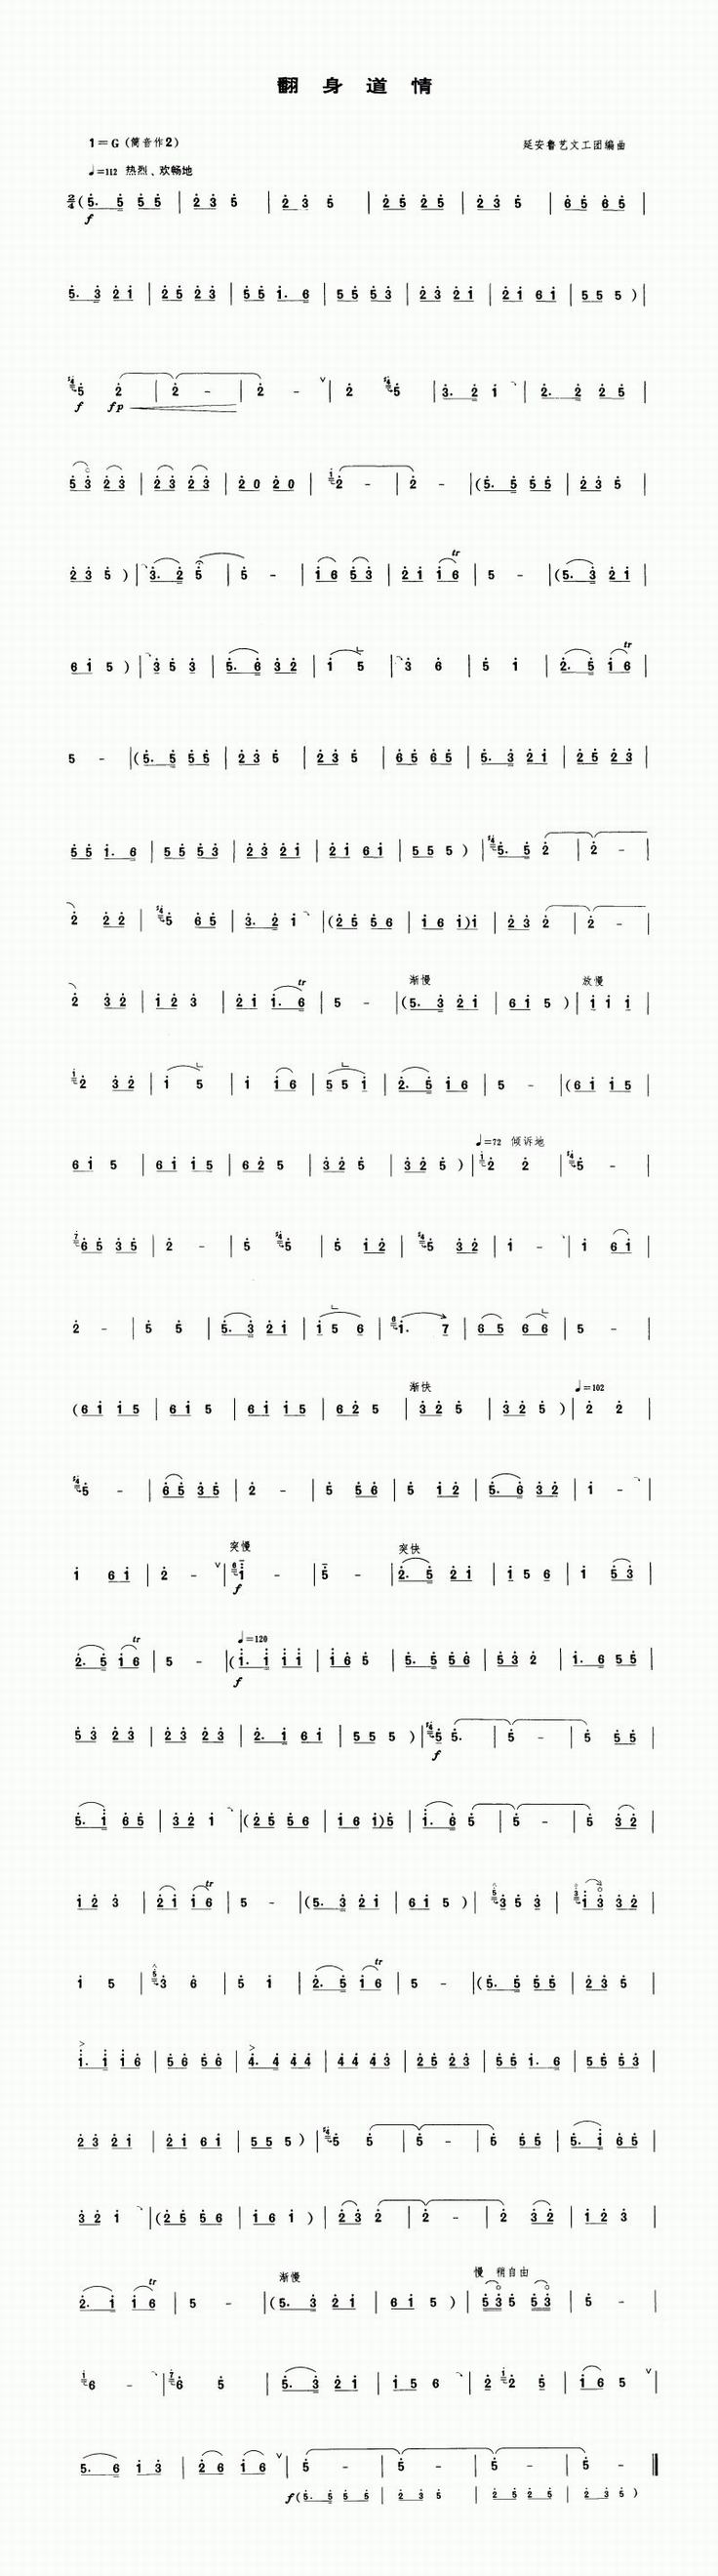 翻身道情
1=G (筒音作2) 延安鲁艺文工团编曲
♩=112 热烈、欢畅地
2/4 (5. 5 5 5 | 2 3 5 | 2 3 5 | 2 5 2 5 | 2 3 5 | 6 5 6 5 |
f
5. 3 2 1 | 2 5 2 3 | 5 5 1. 6 | 5 5 5 3 | 2 3 2 1 | 2 1 6 1 | 5 5 5 ) |
5 2 | 2 - | 2 - ∨ | 2 5 | 3. 2 1 | 2. 2 2 5 |
f fp
5 3 2 3 | 2 3 2 3 | 2 0 2 0 | 2 - | 2 - | (5. 5 5 5 | 2 3 5 |
tr
2 3 5 ) | 3. 2 5 | 5 - | 1 6 5 3 | 2 1 1 6 | 5 - | (5. 3 2 1 |
tr
6 1 5 ) | 3 5 3 | 5. 6 3 2 | 1 5 | 3 6 | 5 1 | 2. 5 1 6 |
5 - | (5. 5 5 5 | 2 3 5 | 2 3 5 | 6 5 6 5 | 5. 3 2 1 | 2 5 2 3 |
5 5 1. 6 | 5 5 5 3 | 2 3 2 1 | 2 1 6 1 | 5 5 5 ) | 5. 5 2 | 2 - |
2 2 2 | 5 6 5 | 3. 2 1 | (2 5 5 6 | 1 6 1)1 | 2 3 2 | 2 - |
tr 渐慢 放慢
2 3 2 | 1 2 3 | 2 1 1. 6 | 5 - | (5. 3 2 1 | 6 1 5 ) | 1 1 1 |
2 3 2 | 1 5 | 1 1 6 | 5 5 1 | 2. 5 1 6 | 5 - | (6 1 1 5 |
♩=72 倾诉地
6 1 5 | 6 1 1 5 | 6 2 5 | 3 2 5 | 3 2 5 ) | 2 2 | 5 - |
6 5 3 5 | 2 - | 5 5 | 5 1 2 | 5 3 2 | 1 - | 1 6 1 |
2 - | 5 5 | 5. 3 2 1 | 1 5 6 | 1. 7 | 6 5 6 6 | 5 - |
渐快 ♩=102
(6 1 1 5 | 6 1 5 | 6 1 1 5 | 6 2 5 | 3 2 5 | 3 2 5 ) | 2 2 |
5 - | 6 5 3 5 | 2 - | 5 5 6 | 5 1 2 | 5. 6 3 2 | 1 - |
突慢 突快
1 6 1 | 2 - ∨ | 1 - | 5 - | 2. 5 2 1 | 1 5 6 | 1 5 3 |
f
tr ♩=120
2. 5 1 6 | 5 - | (1. 1 1 1 | 1 6 5 | 5. 5 5 6 | 5 3 2 | 1. 6 5 5 |
f
5 3 2 3 | 2 3 2 3 | 2. 1 6 1 | 5 5 5 ) | 5 5. | 5 - | 5 5 5 |
f
5. 1 6 5 | 3 2 1 | (2 5 5 6 | 1 6 1)5 | 1. 6 5 | 5 - | 5 3 2 |
tr
1 2 3 | 2 1 1 6 | 5 - | (5. 3 2 1 | 6 1 5 ) | 3 5 3 | 1 3 3 2 |
tr
1 5 | 3 6 | 5 1 | 2. 5 1 6 | 5 - | (5. 5 5 5 | 2 3 5 |
1. 1 1 6 | 5 6 5 6 | 4. 4 4 4 | 4 4 4 3 | 2 5 2 3 | 5 5 1. 6 | 5 5 5 3 |
2 3 2 1 | 2 1 6 1 | 5 5 5 ) | 5 5 | 5 - | 5 5 5 | 5. 1 6 5 |
3 2 1 | (2 5 5 6 | 1 6 1 ) | 2 3 2 | 2 - | 2 3 2 | 1 2 3 |
tr 渐慢 慢 稍自由
2. 1 1 6 | 5 - | (5. 3 2 1 | 6 1 5 ) | 5 3 5 5 3 | 5 - |
6 - | 6 5 | 5. 3 2 1 | 1 5 6 | 2 2 5 | 1 6 5 ∨ |
5. 6 1 3 | 2 6 1 6 ∨ | 5 - | 5 - | 5 - | 5 - ‖
f (5. 5 5 5 | 2 3 5 | 2 5 2 5 | 2 3 5 )